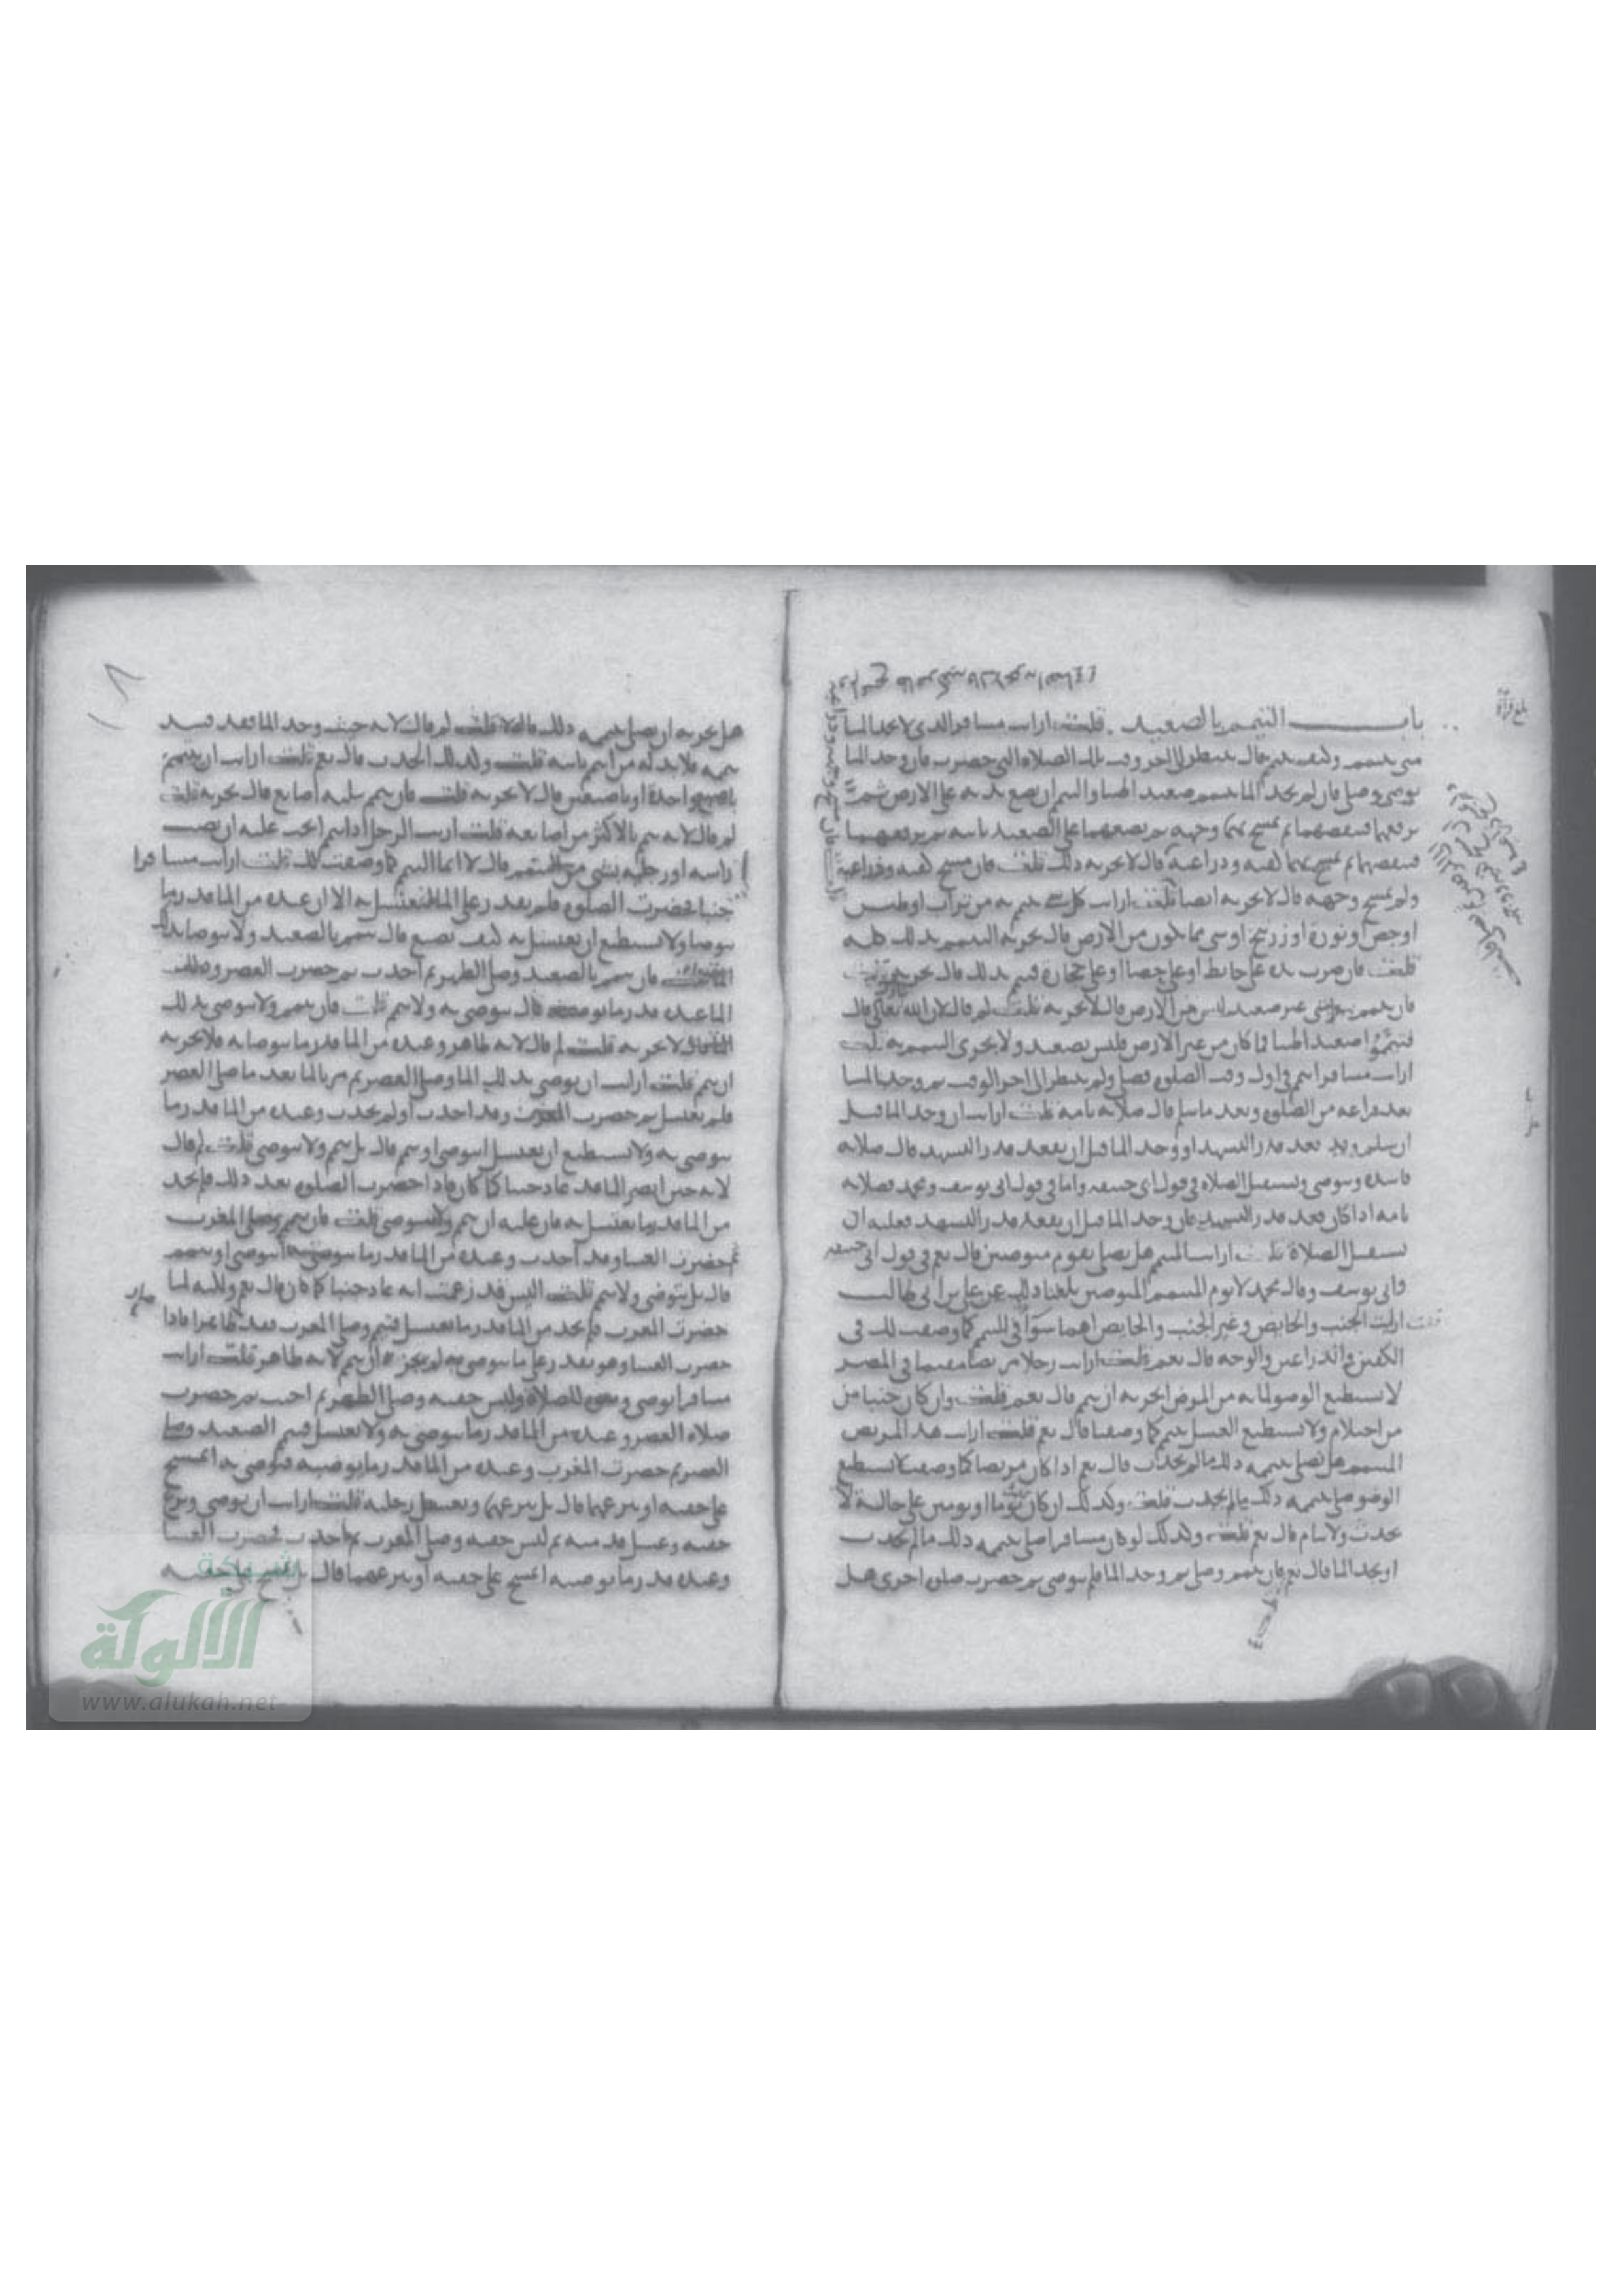 بلغ قراءة
باب التيمم بالصعيد . قلت ارايت مسافرا لذى لا يجد الما
متى يتيمم وكيف يتيمم قال ينتظر الى اخر وقت تلك الصلاة التى حضرت فان وجد الما
توضى وصلى فان لم يجد الما تيمم صعيدا طيبا والتيمم ان يضع يديه على الارض ثم
يرفعهما فينفضهما ثم يمسح بهما وجهه ثم يضعهما على الصعيد ثانيه ثم يرفعهما
فينفضهما ثم يمسح بهما كفيه وذراعيه قال لا يجزيه ذلك قلت فان مسح كفيه وذراعيه
ولم يمسح وجهه قال لا يجزيه ايضا قلت ارايت كل شى تيمم به من تراب او طين
او جص او نورة او زرنيخ او شى مما يكون من الارض قال يجزيه التيمم بذلك كله
قلت فان ضرب يده على حايط او على حصا او على حجارة فتيمم بذلك قال يجزيه
فان تيمم بشى غير صعيد ليس من الارض قال لا يجزيه قلت لم قال لان الله تعالى قال
فتيمموا صعيدا طيبا فما كان من غير الارض فليس بصعيد ولا يجزى التيمم به قلت
ارايت مسافرا تيمم فى اول وقت الصلوه فصلى ولم ينتظر الى اخر الوقت ثم وجد الما
بعد فراغه من الصلوه وبعد ما سلم قال صلاته تامه قلت ارايت ان وجد الما قبل
ان يسلم وقد قعد قدر التشهد او وجد الما قبل ان يقعد قدر التشهد قال صلاته
فاسده ويتوضى ويستقبل الصلاه فى قول ابى حنيفه واما فى قول ابى يوسف ومحمد فصلاته
تامه اذا كان قعد قدر التشهد فان وجد الما قبل ان يقعد قدر التشهد فعليه ان
يستقبل الصلاة قلت ارايت المتيمم هل يصلى بقوم متوضين قال نعم فى قول ابى حنيفه
وابى يوسف وقال محمد لا يوم المتيمم المتوضين بلغنا ذلك عن على بن ابى طالب
قلت ارايت الجنب والحايض وغير الجنب والحايض اهما سوآ فى التيمم كما وصفت لك فى
الكفين والذراعين والوجه قال نعم قلت ارايت رجلا مريضا مقيما فى المصر
لا يستطيع الوضو لما به من المرض ايجزيه ان يتيمم قال نعم قلت وان كان جنبا من
من احتلام ولا يستطيع الغسل يتيمم كما وصفت قال نعم قلت ارايت هذا المريض
المتيمم هل يصلى بتيممه ذلك ما لم يحدث قال نعم اذا كان مريضا كما وصفت لا يستطيع
الوضو صلى بتيممه ذلك ما لم يحدث قلت وكذلك ان كان يوما او يومين على حاله لا
يحدث ولا ينام قال نعم قلت وكذلك لو كان مسافرا صلى بتيممه ذلك ما لم يحدث
او يجد الما قال نعم فان تيمم وصلى ثم وجد الما فلم يتوضى ثم حضرت صلوه اخرى هل
هل يجزيه ان يصلى بتيممه ذلك قال لا قلت لم قال لانه حيث وجد الما فقد فسد
تيممه فلا بد له من التيمم ثانيه قلت وكذلك ان احدث قال نعم قلت ارايت ان تيمم
باصبع واحدة او باصبعين قال لا يجزيه قلت فان تيمم بثلثه اصابع قال يجزيه قلت
لم قال لانه تيمم بالاكثر من اصابعه قلت ارايت الرجل اذا تيمم ايجب عليه ان يمسح
راسه او رجليه بشى من التيمم قال لا انما التيمم كما وصفت لك قلت ارايت مسافرا
جنبا حضرت الصلوه فلم يقدر على الما فيغتسل به الا ان عنده من الما قدر ما
يتوضا ولا يستطيع ان يغتسل به كيف يصنع قال يتيمم بالصعيد ولا يتوضا بذلك
الما قلت فان تيمم بالصعيد وصلى الظهر ثم احدث ثم حضرت العصر وذلك
الما عنده قدر ما يوضيه قال يتوضى به ولا يتيمم قلت فان تيمم ولا يتوضى بذلك
الما قال لا يجزيه قلت لم قال لانه طاهر وعنده من الما قدر ما يتوضا به فلا يجزيه
ان يتيمم قلت ارايت ان توضى بذلك الما وصلى العصر ثم مر بالما بعد ما صلى العصر
فلم يغتسل ثم حضرت المغرب وقد احدث او لم يحدث وعنده من الما قدر ما
يتوضى به ولا يستطيع ان يغتسل ايتوضى او يتيمم قال بل يتيمم ولا يتوضى قلت لم قال
لانه حين ابصر الما قد عاد جنبا كما كان فاذا حضرت الصلوه بعد ذلك فلم يجد
من الما قدر ما يغتسل به فان عليه ان يتيمم ولا يتوضى قلت فان تيمم وصلى المغرب
ثم حضرت العشا وقد احدث وعنده من الما قدر ما يتوضى به ايتوضى او يتيمم
قال بل يتوضى ولا يتيمم قلت اليس قد زعمت انه عاد جنبا كما كان قال نعم ولكنه لما
حضرت المغرب فلم يجد من الما قدر ما يغتسل فتيمم وصلى المغرب فقد طاهرا فاذا
حضرت العشا وهو يقدر على ما يتوضى به لم يجزه ان يتيمم لانه طاهر قلت ارايت
مسافرا توضى للصلاة ولبس خفيه وصلى الظهر ثم اجنب ثم حضرت
صلاه العصر وعنده من الما قدر ما يتوضى به ولا يغتسل فتيمم الصعيد وصلى
العصر ثم حضرت المغرب وعنده من الما قدر ما يوضيه فتوضى به ايمسح
على خفيه او ينزعهما قال بل ينزعهما ويغسل رجليه قلت ارايت ان توضى ونزع
خفيه وغسل قدميه ثم لبس خفيه وصلى المغرب ثم احدث فحضرت العشا
وعنده قدر ما يوضيه ايمسح على خفيه او ينزعهما قال بل يمسح على خفيه
شبكة
الألوكة
www.alukah.net